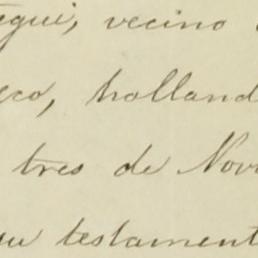 egui, vecino
eco, holland
tres de Nov
su testament